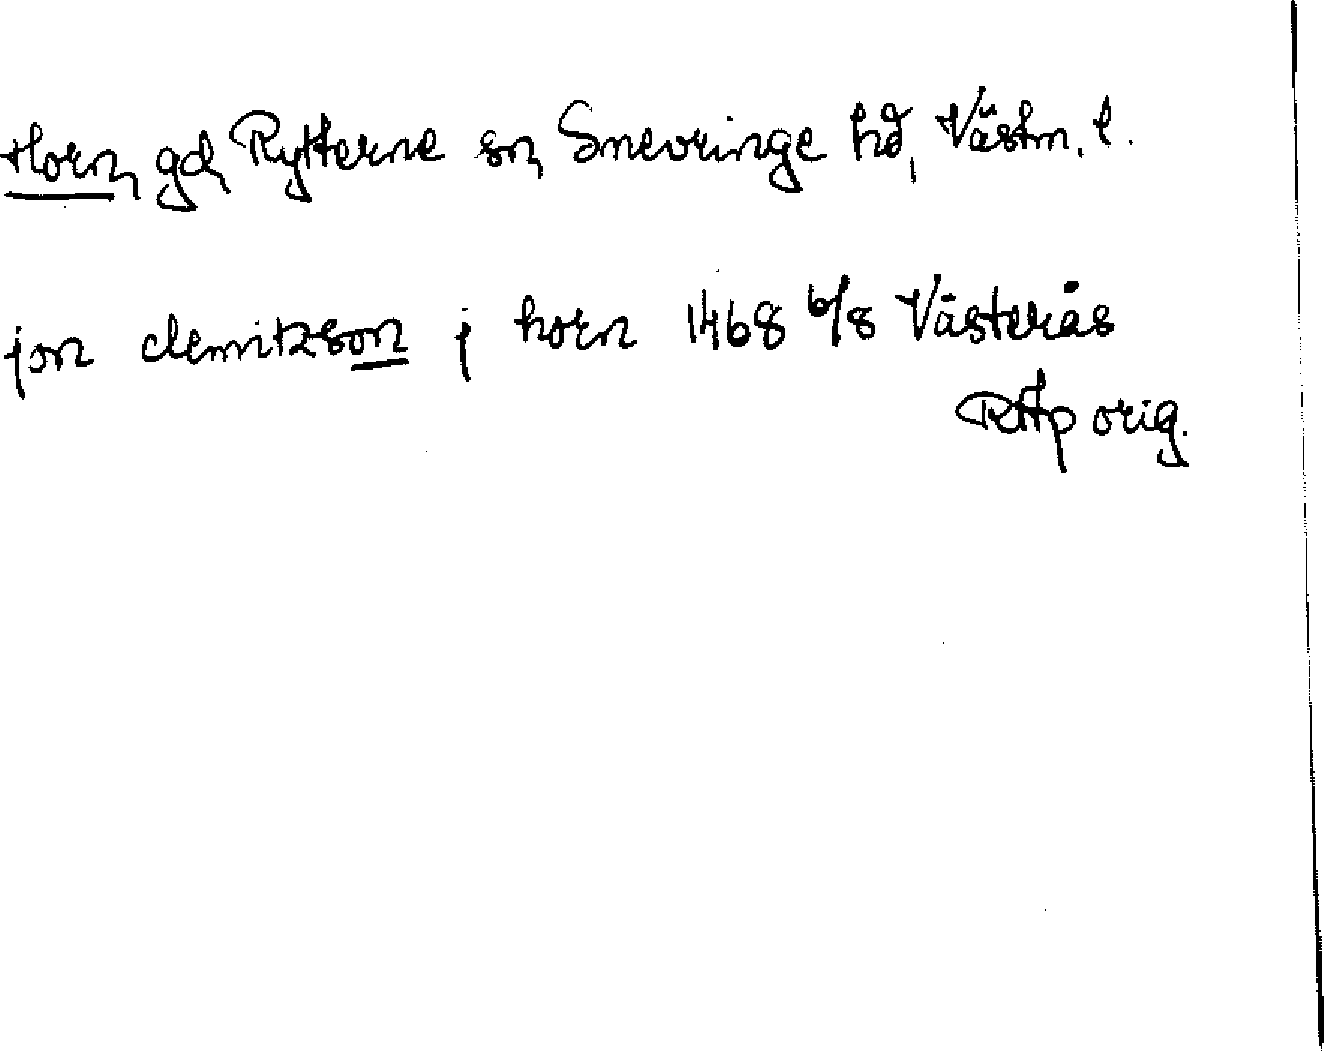 Horn, gd, Rytterne sn, Snevringe hd, Västm. l.
jon clemitzson j horn 1468 6/8 Västerås
RAp orig.